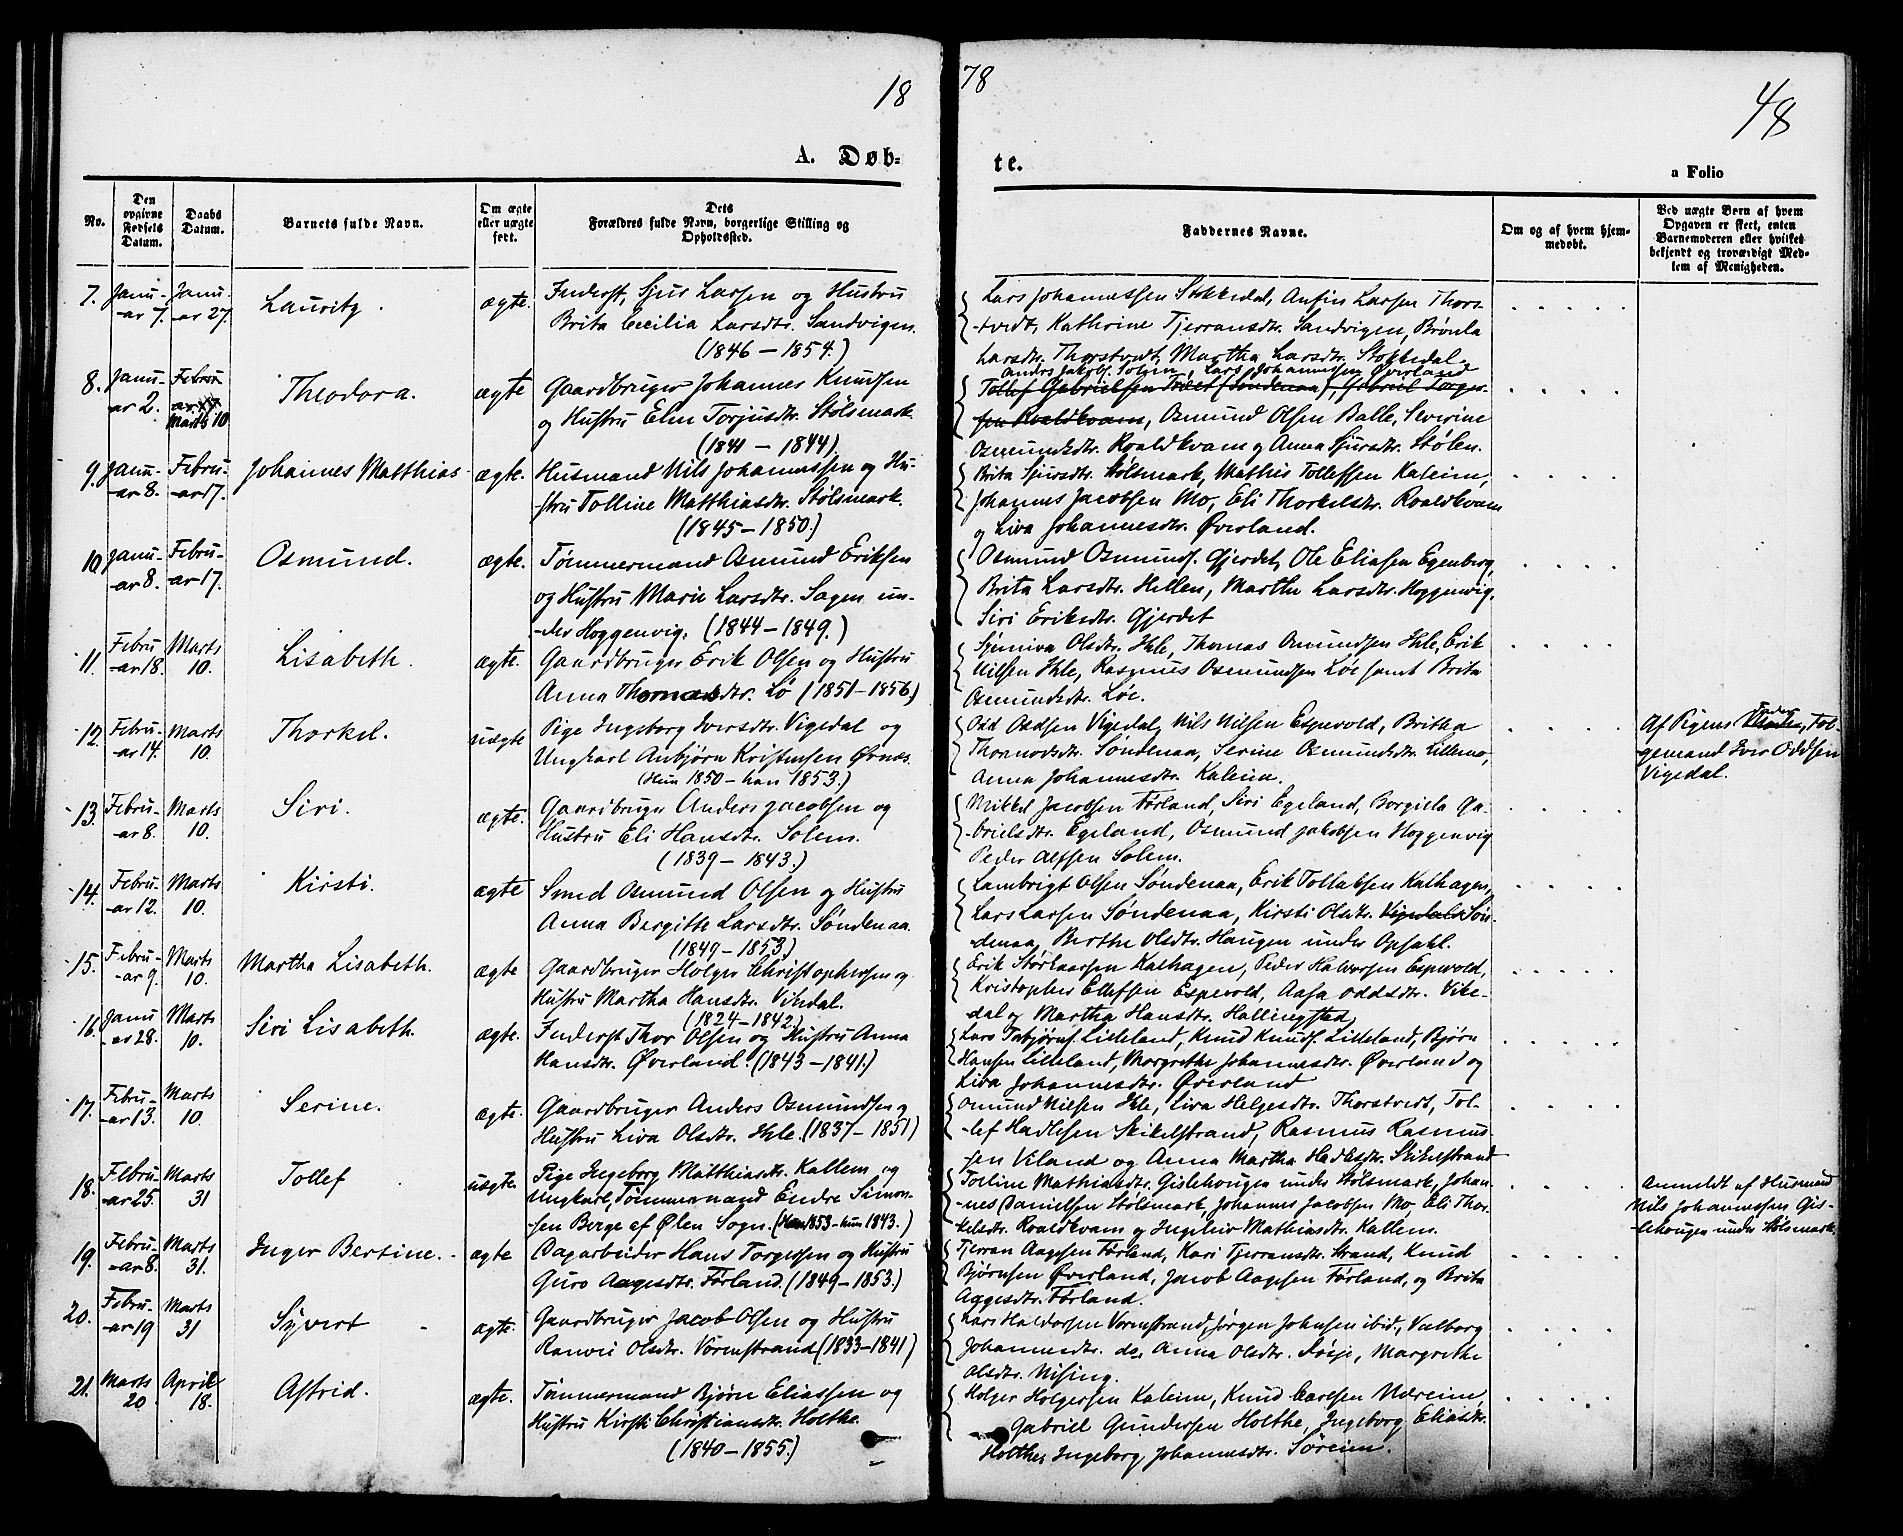 18
78
48
A. Døb-
te.
a Folio
No.
Den opgivne Fødsels Datum.
Daabs Datum.
Barnets fulde Navn.
Om ægte eller uægte født.
Dets Forældres fulde Navn, borgerlige Stilling og Opholdssted.
Faddernes Navne.
Om og af hvem hjemmedøbt.
Ved uægte Børn af hvem Opgaven er skeet, enten Barnemoderen eller hvilket bekjendt og troværdigt Medlem af Menigheden.
7. Janu-ar 7. Janu-ar 27. Lauritz. ægte. Inderst, Sjur Larsen og Hustru
Brita Cecilia Larsdtr. Sandvigen.
(1846 – 1854.)
Lars Johannessen Stokkedal, Anfin Larsen Thors-
tvedt, Kathrine Tjerransdtr. Sandvigen, Brønla
Larsdtr. Thorstvedt, Martha Larsdtr. Stokkedal.
8. Janu-ar 2. Febru-ar Marts 10 Theodora. ægte Gaardbruger Johannes Knudsen
og Hustru Elen Torjusdtr. Stølsmark.
(1841 – 1844)
Anders Jakobs. Solem, Lars Johannessen Øverland
Tollef Gabrielsen Træet (Søndenaa), Gabriel Torger-
sen Roaldkvam, Osmund Olsen Balle, Severine
Osmundsdtr. Roaldkvam og Anna Sjursdtr. Stølen.
9. Janu-ar 8. Febru-ar 17. Johannes Matthias ægte. Husmand Nils Johannessen og Hu-
stru Tolline Matthiasdtr. Stølsmark.
(1845 – 1850.)
Brita Sjursdtr. Stølsmark, Mathis Tollefsen Kaleim,
Johannes Jacobsen Mo, Eli Thorkelsdtr. Roaldkvam
og Liva Johannesdtr. Øverland.
10. Janu-ar 8. Febru-ar 17. Osmund. ægte. Tømmermand Osmund Eriksen
og Hustru Marie Larsdtr. Sagen un-
der Hoggenvig. (1844 – 1849.)
Osmund Osmunds. Gjerdet, Ole Eliasen Egenberg,
Brita Larsdtr. Hellen, Martha Larsdtr. Hoggenvig,
Siri Eriksdtr. Gjerdet
11. Febru-ar 18. Marts 10. Lisabeth. ægte. Gaardbruger Erik Olsen og Hustru
Anna Thomasdtr. Lø (1851 – 1856.)
Sjønniva Olsdtr. Hle, Thomas Osmundsen Hle, Erik
Nilsen Hle, Rasmus Osmundsen Løe samt Brita
Osmundsdtr. Løe.
12. Febru-ar 14. Marts 10. Thorkel. uægte Pige Ingeborg Iversdtr. Vigedal og
Ungkarl Anbjørn Kristensen Ørnes.
(Hun 1850 – han 1853.)
Odd Oddsen Vigedal, Nils Nilsen Espevold, Britha
Thormodsdtr. Søndenaa, Serine Osmundsdtr. Lillemo,
Anna Johannesdtr. Kaleim.
Af Pigens Fader, Fol-
gemand Iver Oddsen
Vigedal.
13. Febru-ar 8. Marts 10. Siri. ægte. Gaardbruger Anders Jacobsen og
Hustru Eli Hansdtr. Solem.
(1839 – 1843.)
Mikkel Jacobsen Førland, Siri Egeland, Borgilla Ga-
brielsdtr. Egeland, Osmund Jakobsen Hoggenvig
Peder Alfsen Solem.
14. Febru-ar 12. Marts 10. Kirsti. ægte Smed Osmund Olsen og Hustru
Anna Bergitte Larsdtr. Søndenaa.
(1849 – 1853)
Lambrigt Olsen Søndenaa, Erik Tollaksen Kalhagen,
Lars Larsen Søndenaa, Kirsti Olsdtr. Vigedal Søn-
denaa, Berthe Olsdtr. Haugen under Opsahl.
15. Febru-ar 9. Marts 10. Martha Lisabeth. ægte Gaardbruger Holger Christophersen og
Hustru Martha Hansdtr. Vikdal.
(1824 – 1842.)
Erik Størkarsen Kalhagen, Peder Halvorsen Espevold,
Kristopher Ellefsen Espevold, Aasa Oddsdtr. Vike-
dal og Martha Hansdtr. Hallingstad
16. Janu-ar 28. Marts 10. Siri Lisabeth. ægte. Inderst Thor Olsen og Hustru Anna
Hansdtr. Øverland. (1843 – 1841.)
Lars Torbjørns. Lilleland, Knud Knuds. Lilleland, Bjørn
Hansen Lilleland, Margrethe Johannesdtr. Øverland og
Liva Johannesdtr. Øverland
17. Febru-ar 13. Marts 10. Serine. ægte. Gaardbruger Anders Osmundsen og
Hustru Liva Olsdtr. Hle. (1837 – 1851)
Omund Nilsen Hle, Liva Helgesdtr. Thorstvedt, Tol-
lef Hadlesen Skikelstrand, Rasmus Rasmus-
sen Viland og Anna Martha Hadlesdtr. Skikelstrand
18. Febru-ar 25. Marts 31 Tollef uægte. Pige Ingeborg Matthiasdtr. Kallem og
Ungkarl, Tømmermand Endre Simon-
sen Berge af Ølen Sogn. (Han 1853 – hun 1843.)
Torline Mathiasdtr. Gislehougen under Stølsmark, Johan-
nes Danielsen Stølsmark, Johannes Jacobsen Mo, Eli Thor-
kelsdtr. Roaldkvam og Ingeleiv Mathiasdtr. Kallem.
Anmeldt af Husmand
Nils Johannessen Gis-
lehougen under Stølsmark.
19. Febru-ar 8. Marts 31. Inger Bertine. ægte Dagarbeider Hans Torgersen og Hustru
Guro Aagesdtr. Førland. (1849 – 1853.)
Tjerran Aagesen Førland, Kari Tjerransdtr. Strand, Knud
Bjørnsen Øverland, Jacob Aagesen Førland, og Brita
Aagesdtr. Førland.
20. Febru-ar 19 Marts 31 Syvert ægte. Gaardbruger Jacob Olsen og Hustru
Ranvei Olsdtr. Vormstrand (1833 – 1841)
Lars Haldorsen Vormstrand, Jørgen Johnsen ibid., Valborg
Johannesdtr. do, Anna Olsdtr. Frøje, Margrethe
Olsdtr. Nising.
21. Marts 20 April 18. Astrid. ægte. Tømmermand Bjørn Eliassen og
Hustru Kirsti Christiansdtr. Holthe.
(1840 – 1855.)
Holger Holgersen Kaleim, Knud Carlsen Næreim
Gabriel Gundersen Holthe, Ingeborg Eliasdtr.
Holthe, Ingeborg Johannesdtr. Søreim.